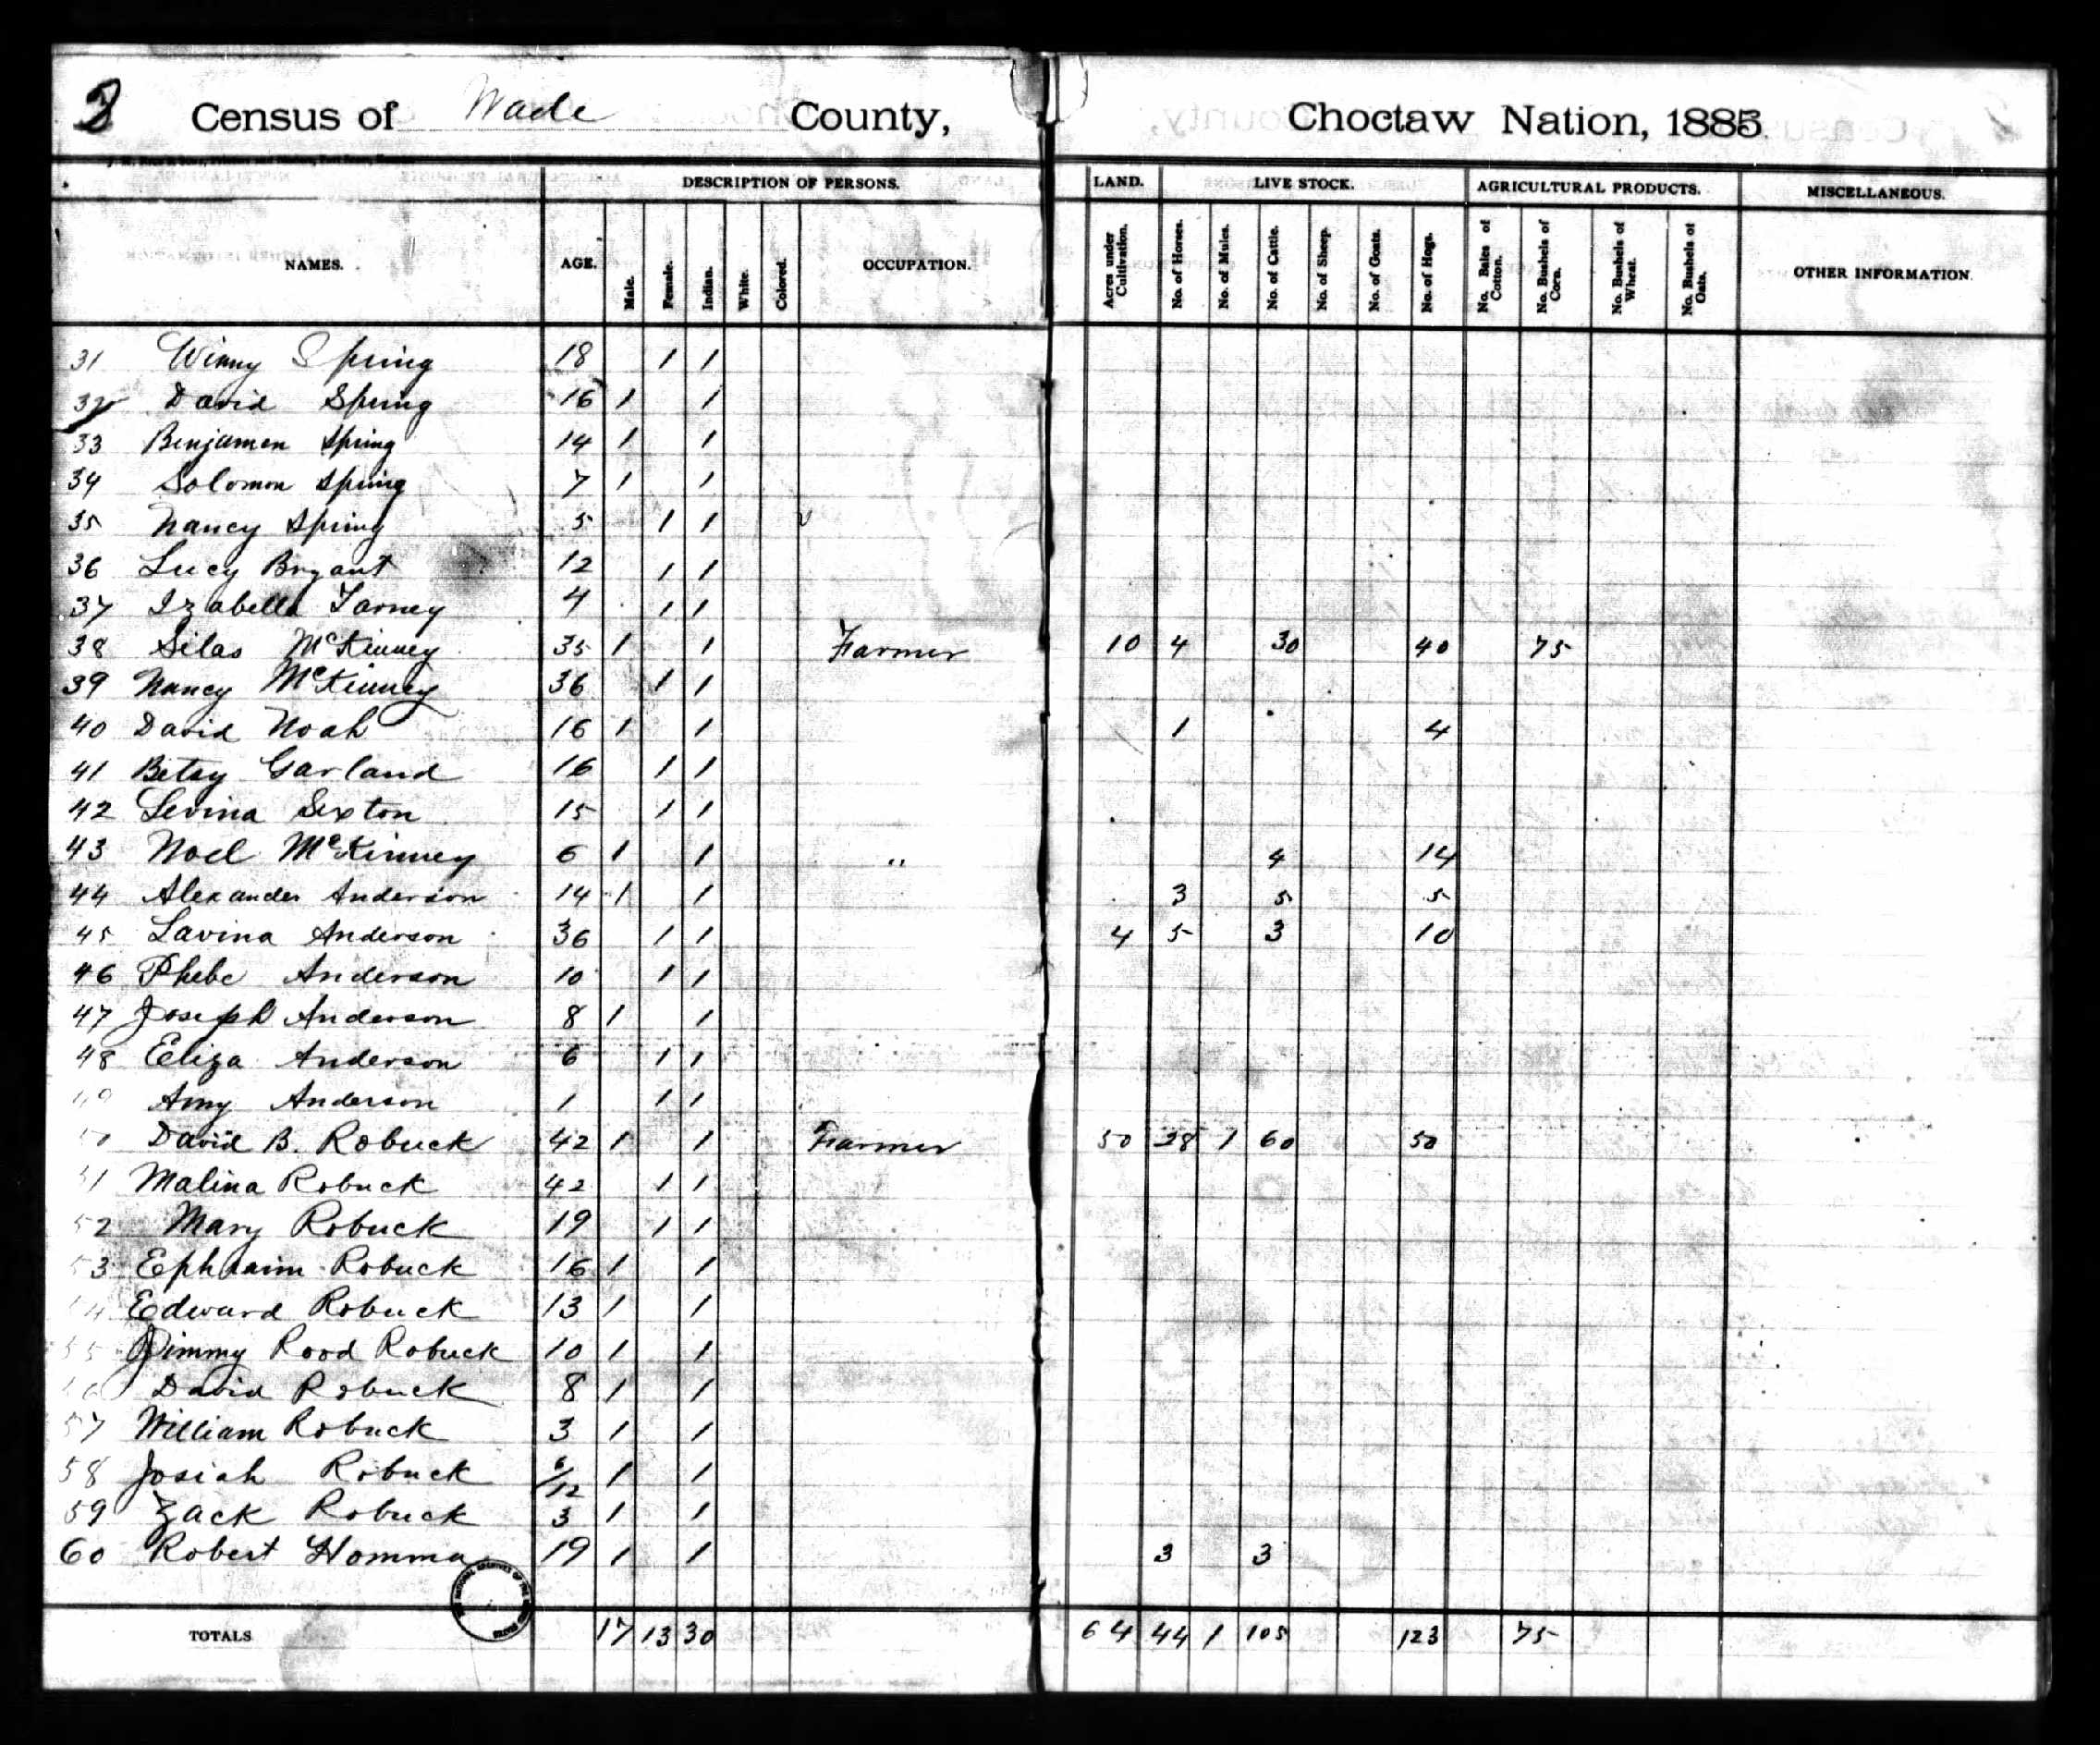 2 Census of Wade County, Choctaw Nation, 1885
DESCRIPTION OF PERSONS. LAND. LIVE STOCK. AGRICULTURAL PRODUCTS. MISCELLANEOUS.
NAMES. AGE. Male. Female. Indian. White. Colored. OCCUPATION. Acres under Cultivation. No. of Horses. No. of Mules. No. of Cattle. No. of Sheep. No. of Goats. No. of Hogs. No. Bales of Cotton. No. Bushels of Corn. No. Bushels of Wheat. No. Bushels of Oats. OTHER INFORMATION.
31 Winny Spring 18 1 1
32 David Spring 16 1 1
33 Benjamen Spring 14 1 1
34 Solomon Spring 7 1 1
35 Nancy Spring 5 1 1
36 Lucy Bryant 12 1 1
37 Izabella Tarney 4 1 1
38 Silas McKinney 35 1 1 Farmer 10 4 30 40 75
39 Nancy McKinney 36 1 1
40 David Noah 16 1 1 1 4
41 Betsy Garland 16 1 1
42 Levina Sexton 15 1 1
43 Noel McKinney 6 1 1 " 4 14
44 Alexander Anderson 14 1 1 3 5 5
45 Lavina Anderson 36 1 1 4 5 3 10
46 Phebe Anderson 10 1 1
47 Joseph Anderson 8 1 1
48 Eliza Anderson 6 1 1
49 Amy Anderson 1 1 1
50 David B. Robuck 42 1 1 Farmer 50 28 1 60 50
51 Malina Robuck 42 1 1
52 Mary Robuck 19 1 1
53 Ephraim Robuck 16 1 1
54 Edward Robuck 13 1 1
55 Jimmy Rood Robuck 10 1 1
56 David Robuck 8 1 1
57 William Robuck 3 1 1
58 Josiah Robuck 6/12 1 1
59 Zack Robuck 3 1 1
60 Robert Homma 19 1 1 3 3
TOTALS 17 13 30 64 44 1 105 123 75